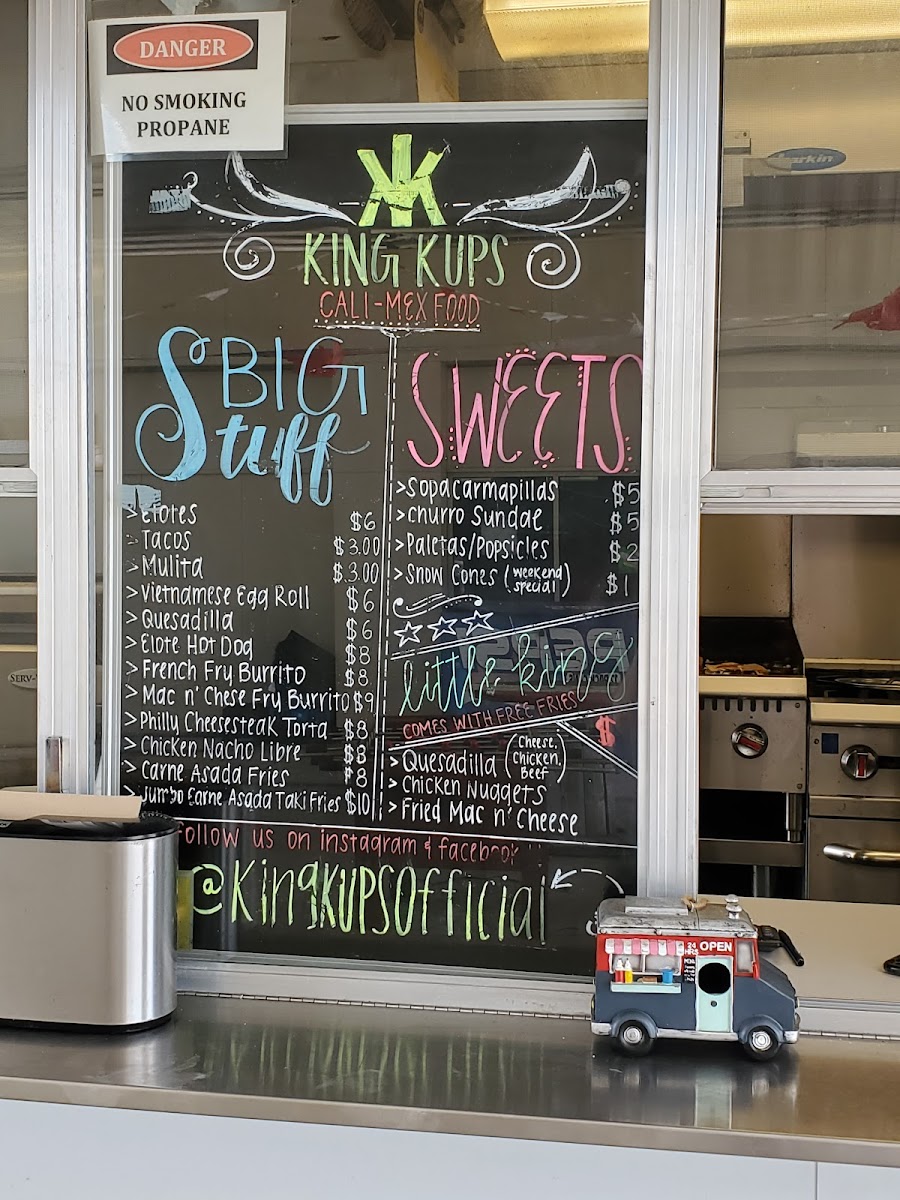 DANGER
NO SMOKING
PROPANE
KING KUPS
CALI-MEX FOOD
BIG
Stuff
> Elotes $6
> Tacos $3.00
> Mulita $3.00
> Vietnamese Egg Roll $6
> Quesadilla $6
> Elote Hot Dog $8
> French Fry Burrito $8
> Mac n' Chese Fry Burrito $9
> Philly Cheesesteak Torta $8
> Chicken Nacho Libre $8
> Carne Asada Fries $8
> Jumbo Carne Asada Taki Fries $10
SWEETS
> Sopacarmapillas $5
> churro Sundae $5
> Paletas/Popsicles $2
> Snow Cones (weekend special) $1
little king
COMES WITH FREE FRIES
$
> Quesadilla (Cheese, Chicken, Beef)
> Chicken Nuggets
> Fried Mac n' Cheese
Follow us on instagram & facebook
@KingKUPSOfficial
24 HRS OPEN
Larkin
SERV-